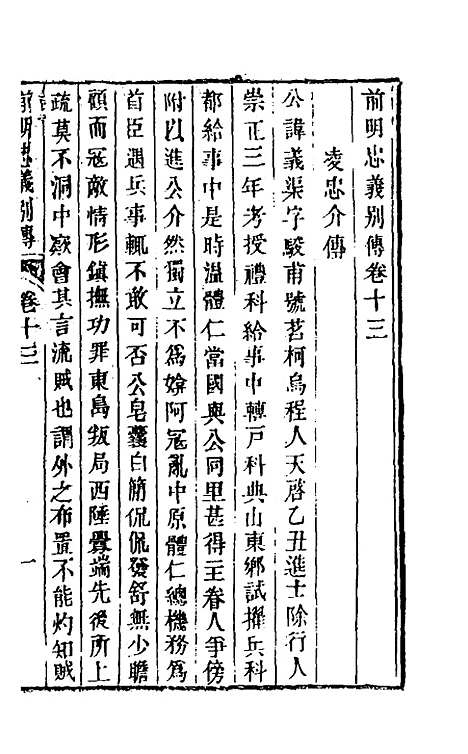 前明忠義別傳卷十三
凌忠介傳
公諱義渠字駿甫號茗柯烏程人天啓乙丑進士除行人
崇正三年考授禮科給事中轉戸科典山東鄉試擢兵科
都給事中是時溫體仁當國與公同里甚得主眷人爭傍
附以進公介然獨立不爲媕阿冦亂中原體仁總機務爲
首臣遇兵事輒不敢可否公皂囊白簡侃侃發舒無少瞻
顧而冦敵情形鎮撫功罪東島叛局西陲釁端先後所上
疏莫不洞中窽會其言流賊也謂外之布置不能灼知賊
前明忠義別傳
卷十三
一